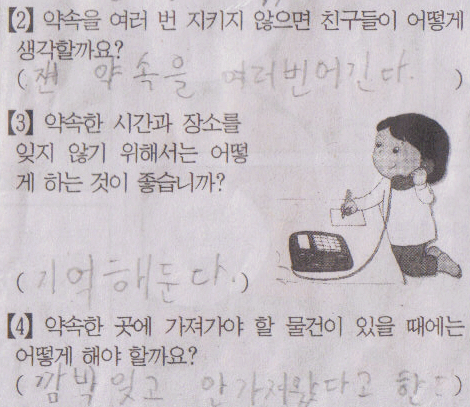 【2】 약속을 여러 번 지키지 않으면 친구들이 어떻게
생각할까요?
( 쟨 약속을 여러번어긴다. )
【3】 약속한 시간과 장소를
잊지 않기 위해서는 어떻
게 하는 것이 좋습니까?
( 기억해둔다. )
【4】 약속한 곳에 가져가야 할 물건이 있을 때에는
어떻게 해야 할까요?
( 깜박잊고 안가저왔다고 한다 )